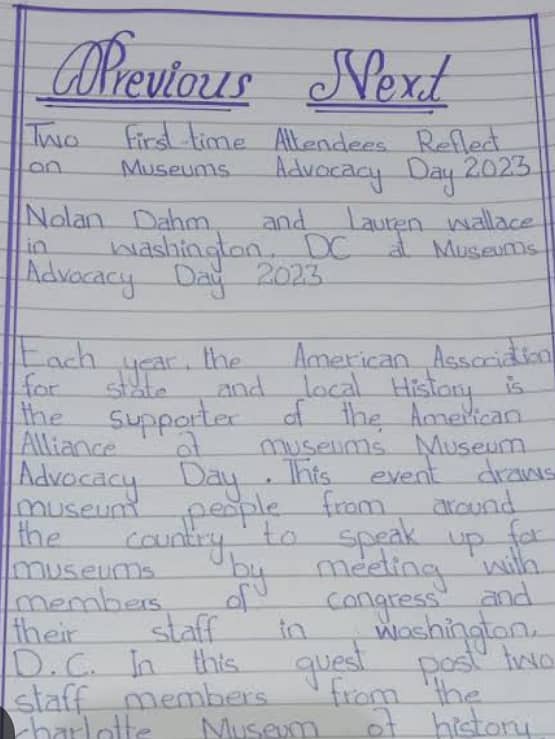 Previous Next
Two First-time Attendees Reflect
on Museums Advocacy Day 2023
Nolan Dahm and Lauren wallace
in washington, DC at Museums
Advocacy Day 2023
Each year, the American Association
for state and local History is
the supporter of the American
Alliance of museums Museum
Advocacy Day. This event draws
museum people from around
the country to speak up for
museums by meeting with
members of congress and
their staff in washington,
D.C. In this guest post two
staff members from the
charlotte Museum of history